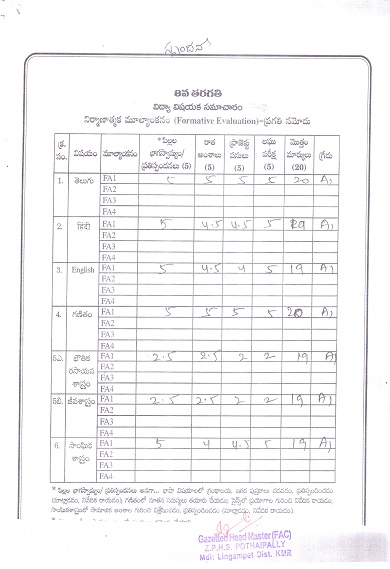 స్పందన
8వ తరగతి
విద్యా విషయక సమాచారం
నిర్మాణాత్మక మూల్యాంకనం (Formative Evaluation)-ప్రగతి నమోదు
క్ర.సం. విషయం మూల్యాంకనం *పిల్లల భాగస్వామ్యం/ప్రతిస్పందనలు (5) రాత అంశాలు (5) ప్రాజెక్టు పనులు (5) లఘు పరీక్ష (5) మొత్తం మార్కులు (20) గ్రేడు
1. తెలుగు FA1 5 5 5 5 20 A1
FA2
FA3
FA4
2. हिंदी FA1 5 4.5 4.5 5 19 A1
FA2
FA3
FA4
3. English FA1 5 4.5 4 5 19 A1
FA2
FA3
FA4
4. గణితం FA1 5 5 5 5 20 A1
FA2
FA3
FA4
5ఎ. భౌతిక రసాయన శాస్త్రం FA1 2.5 2.5 2 2 19 A1
FA2
FA3
FA4
5బి. జీవశాస్త్రం FA1 2.5 2.5 2 2 19 A1
FA2
FA3
FA4
6. సాంఘిక శాస్త్రం FA1 5 4 4.5 5 19 A1
FA2
FA3
FA4
* పిల్లల భాగస్వామ్యం/ ప్రతిస్పందనలు అనగా... భాషా విషయాలలో గ్రంథాలయ, ఇతర పుస్తకాలు చదవడం, ప్రతిస్పందించడం
(మాట్లాడడం, నివేదిక రాయడం); గణితంలో నూతన సమస్యలు తయారు చేయడం; సైన్స్‌లో ప్రయోగాల గురించి నివేదికలు రాయడం;
సాంఘికశాస్త్రంలో సామాజిక అంశాల గురించి విశ్లేషించడం, ప్రతిస్పందించడం (మాట్లాడడం, నివేదిక రాయడం).
Gazetted Head Master (FAC)
Z.P.H.S. POTHAIPALLY
Mdl: Lingampet Dist. KMR